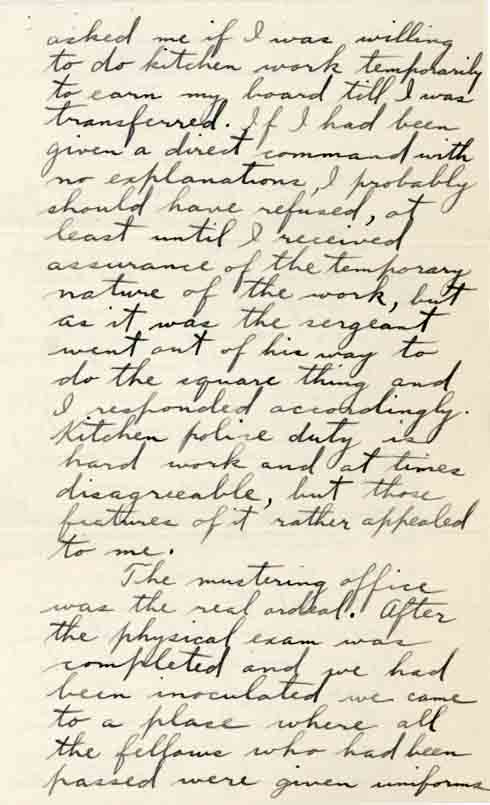 asked me if I was willing
to do kitchen work temporarily
to earn my board till I was
transferred. If I had been
given a direct command with
no explanations, I probably
should have refused, at
least until I received
assurance of the temporary
nature of the work, but
as it was the sergeant
went out of his way to
do the square thing and
I responded accordingly.
Kitchen police duty is
hard work and at times
disagreeable, but those
features of it rather appealed
to me.
The mustering office
was the real ordeal. After
the physical exam was
completed and we had
been inoculated we came
to a place where all
the fellows who had been
passed were given uniforms